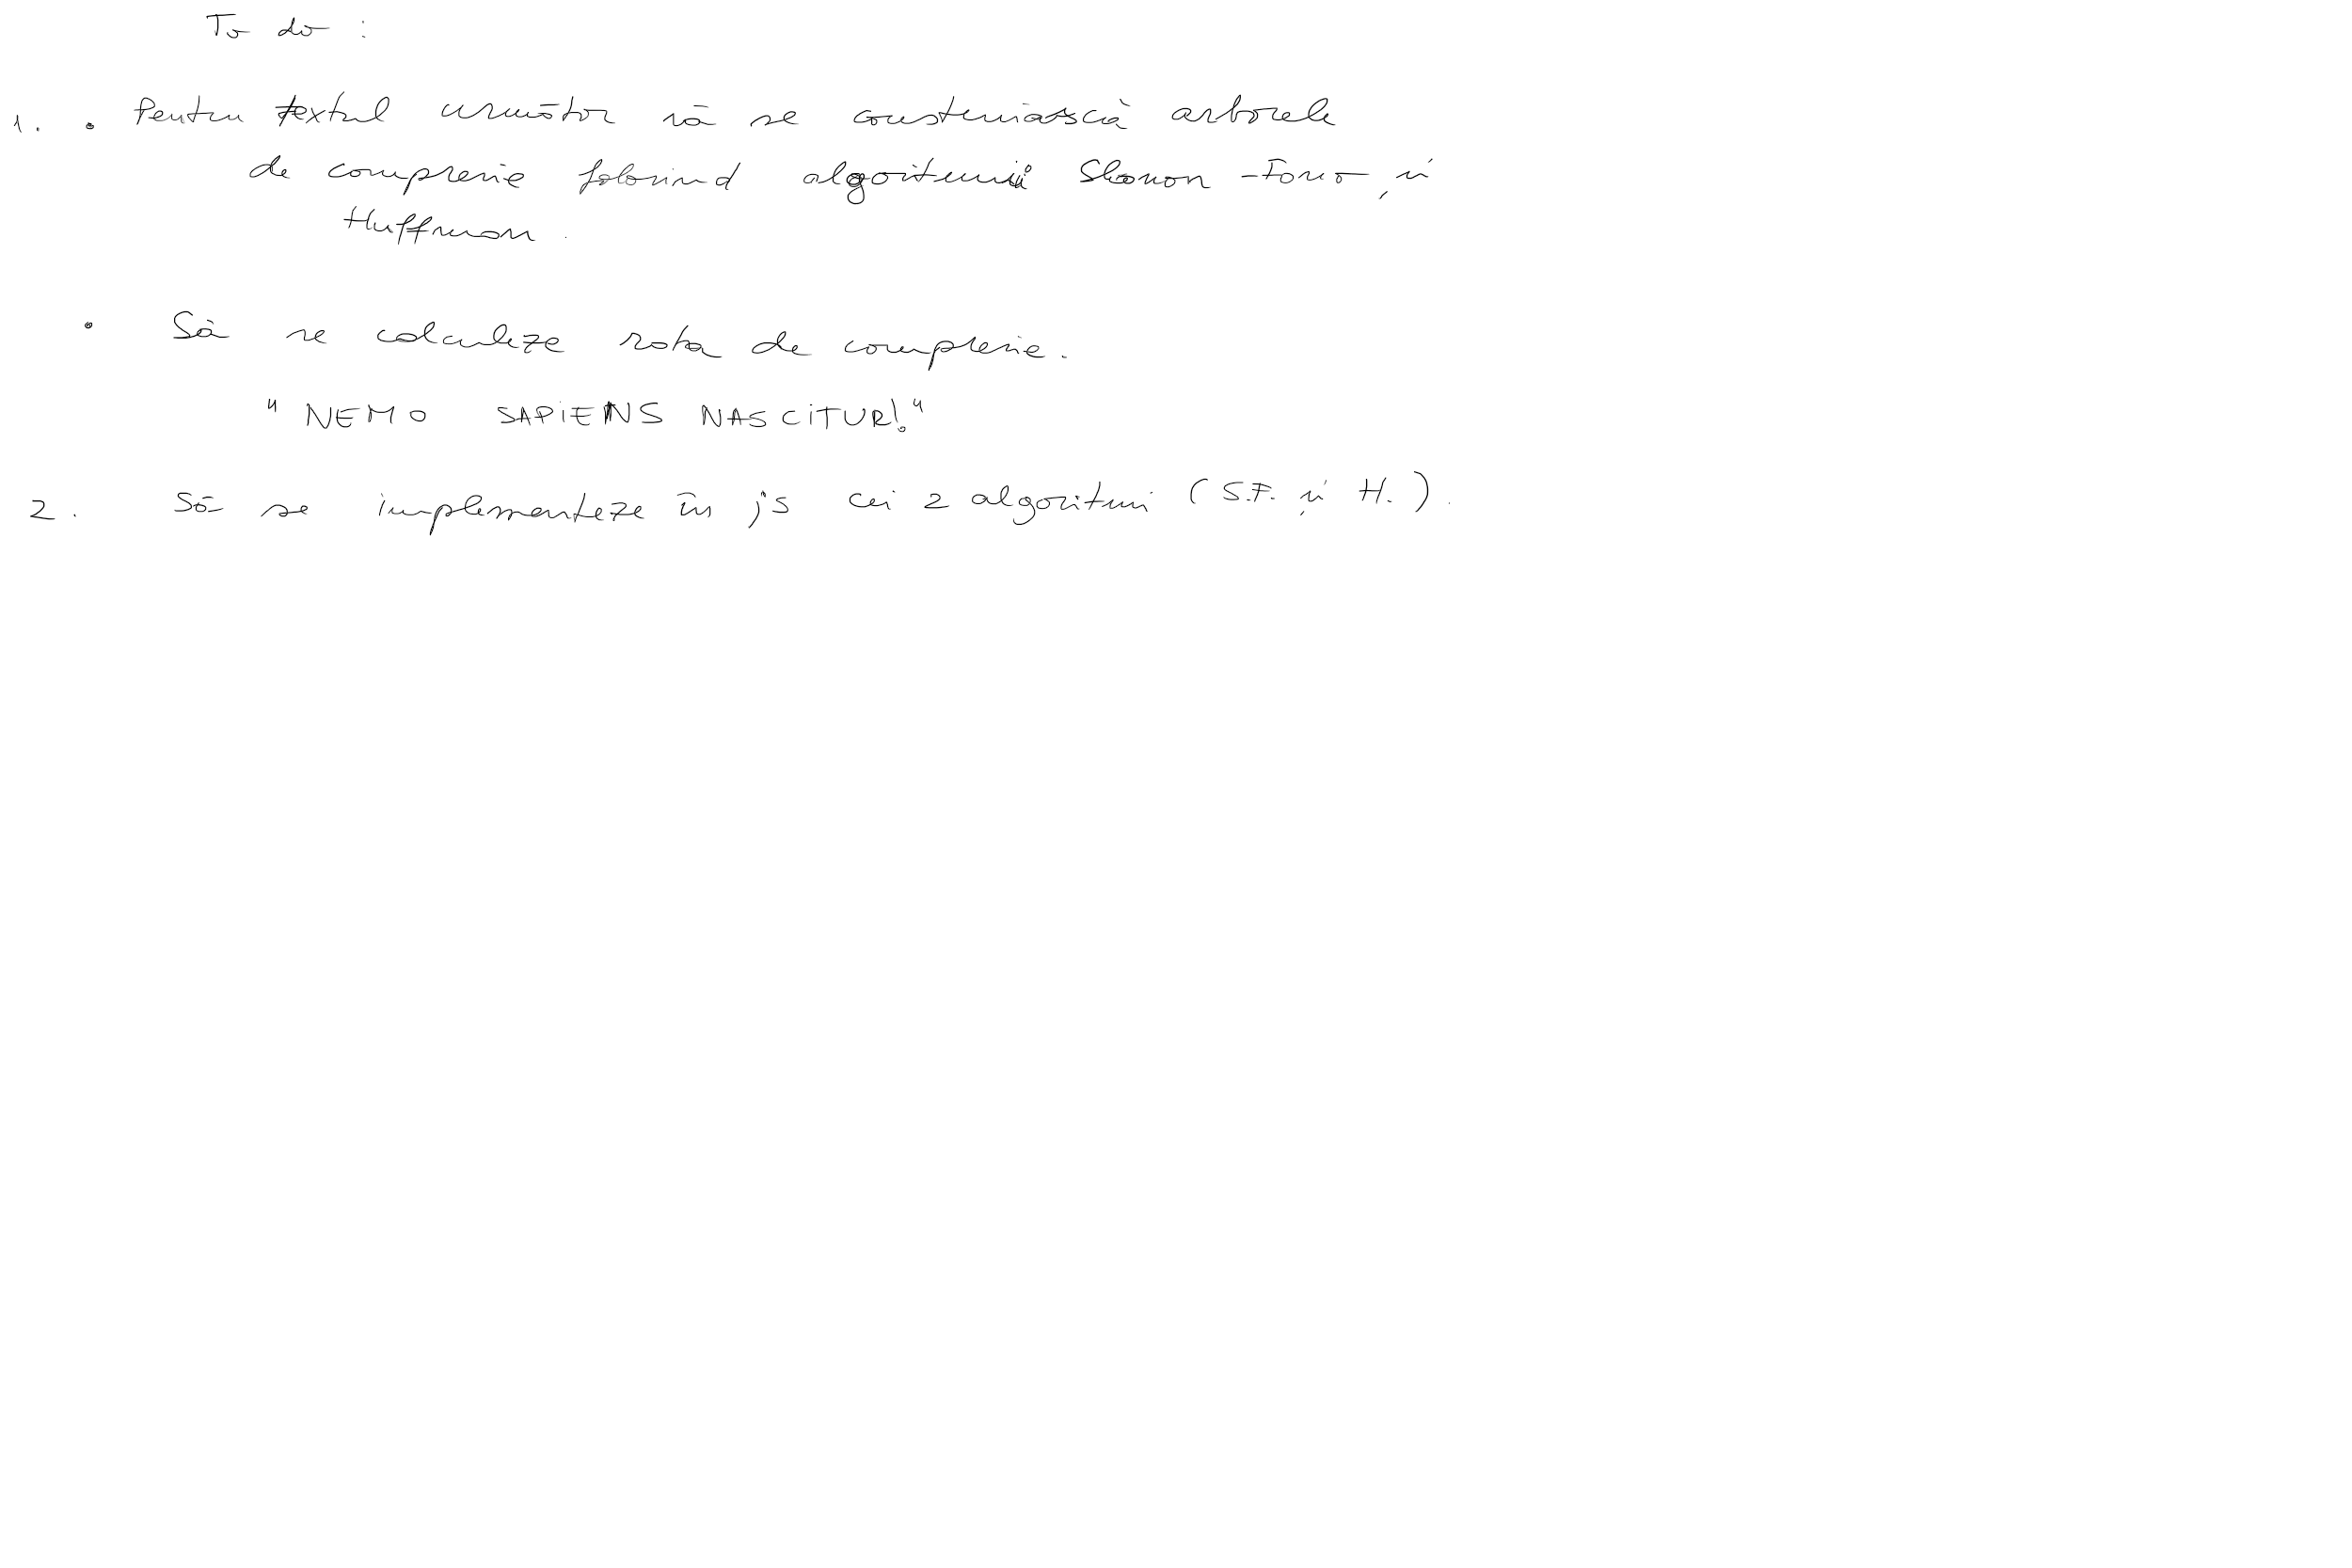 To do :
1. • Pentru textul următor să se construiască arborele
de compresie folosind algoritmii Shanon - Fano și
Huffman.
• Să se calculeze rata de compresie.
"NEMO SAPIENS NASCITUR!"
2. Să se implementeze în js cei 2 algoritmi (S.F. și H.).